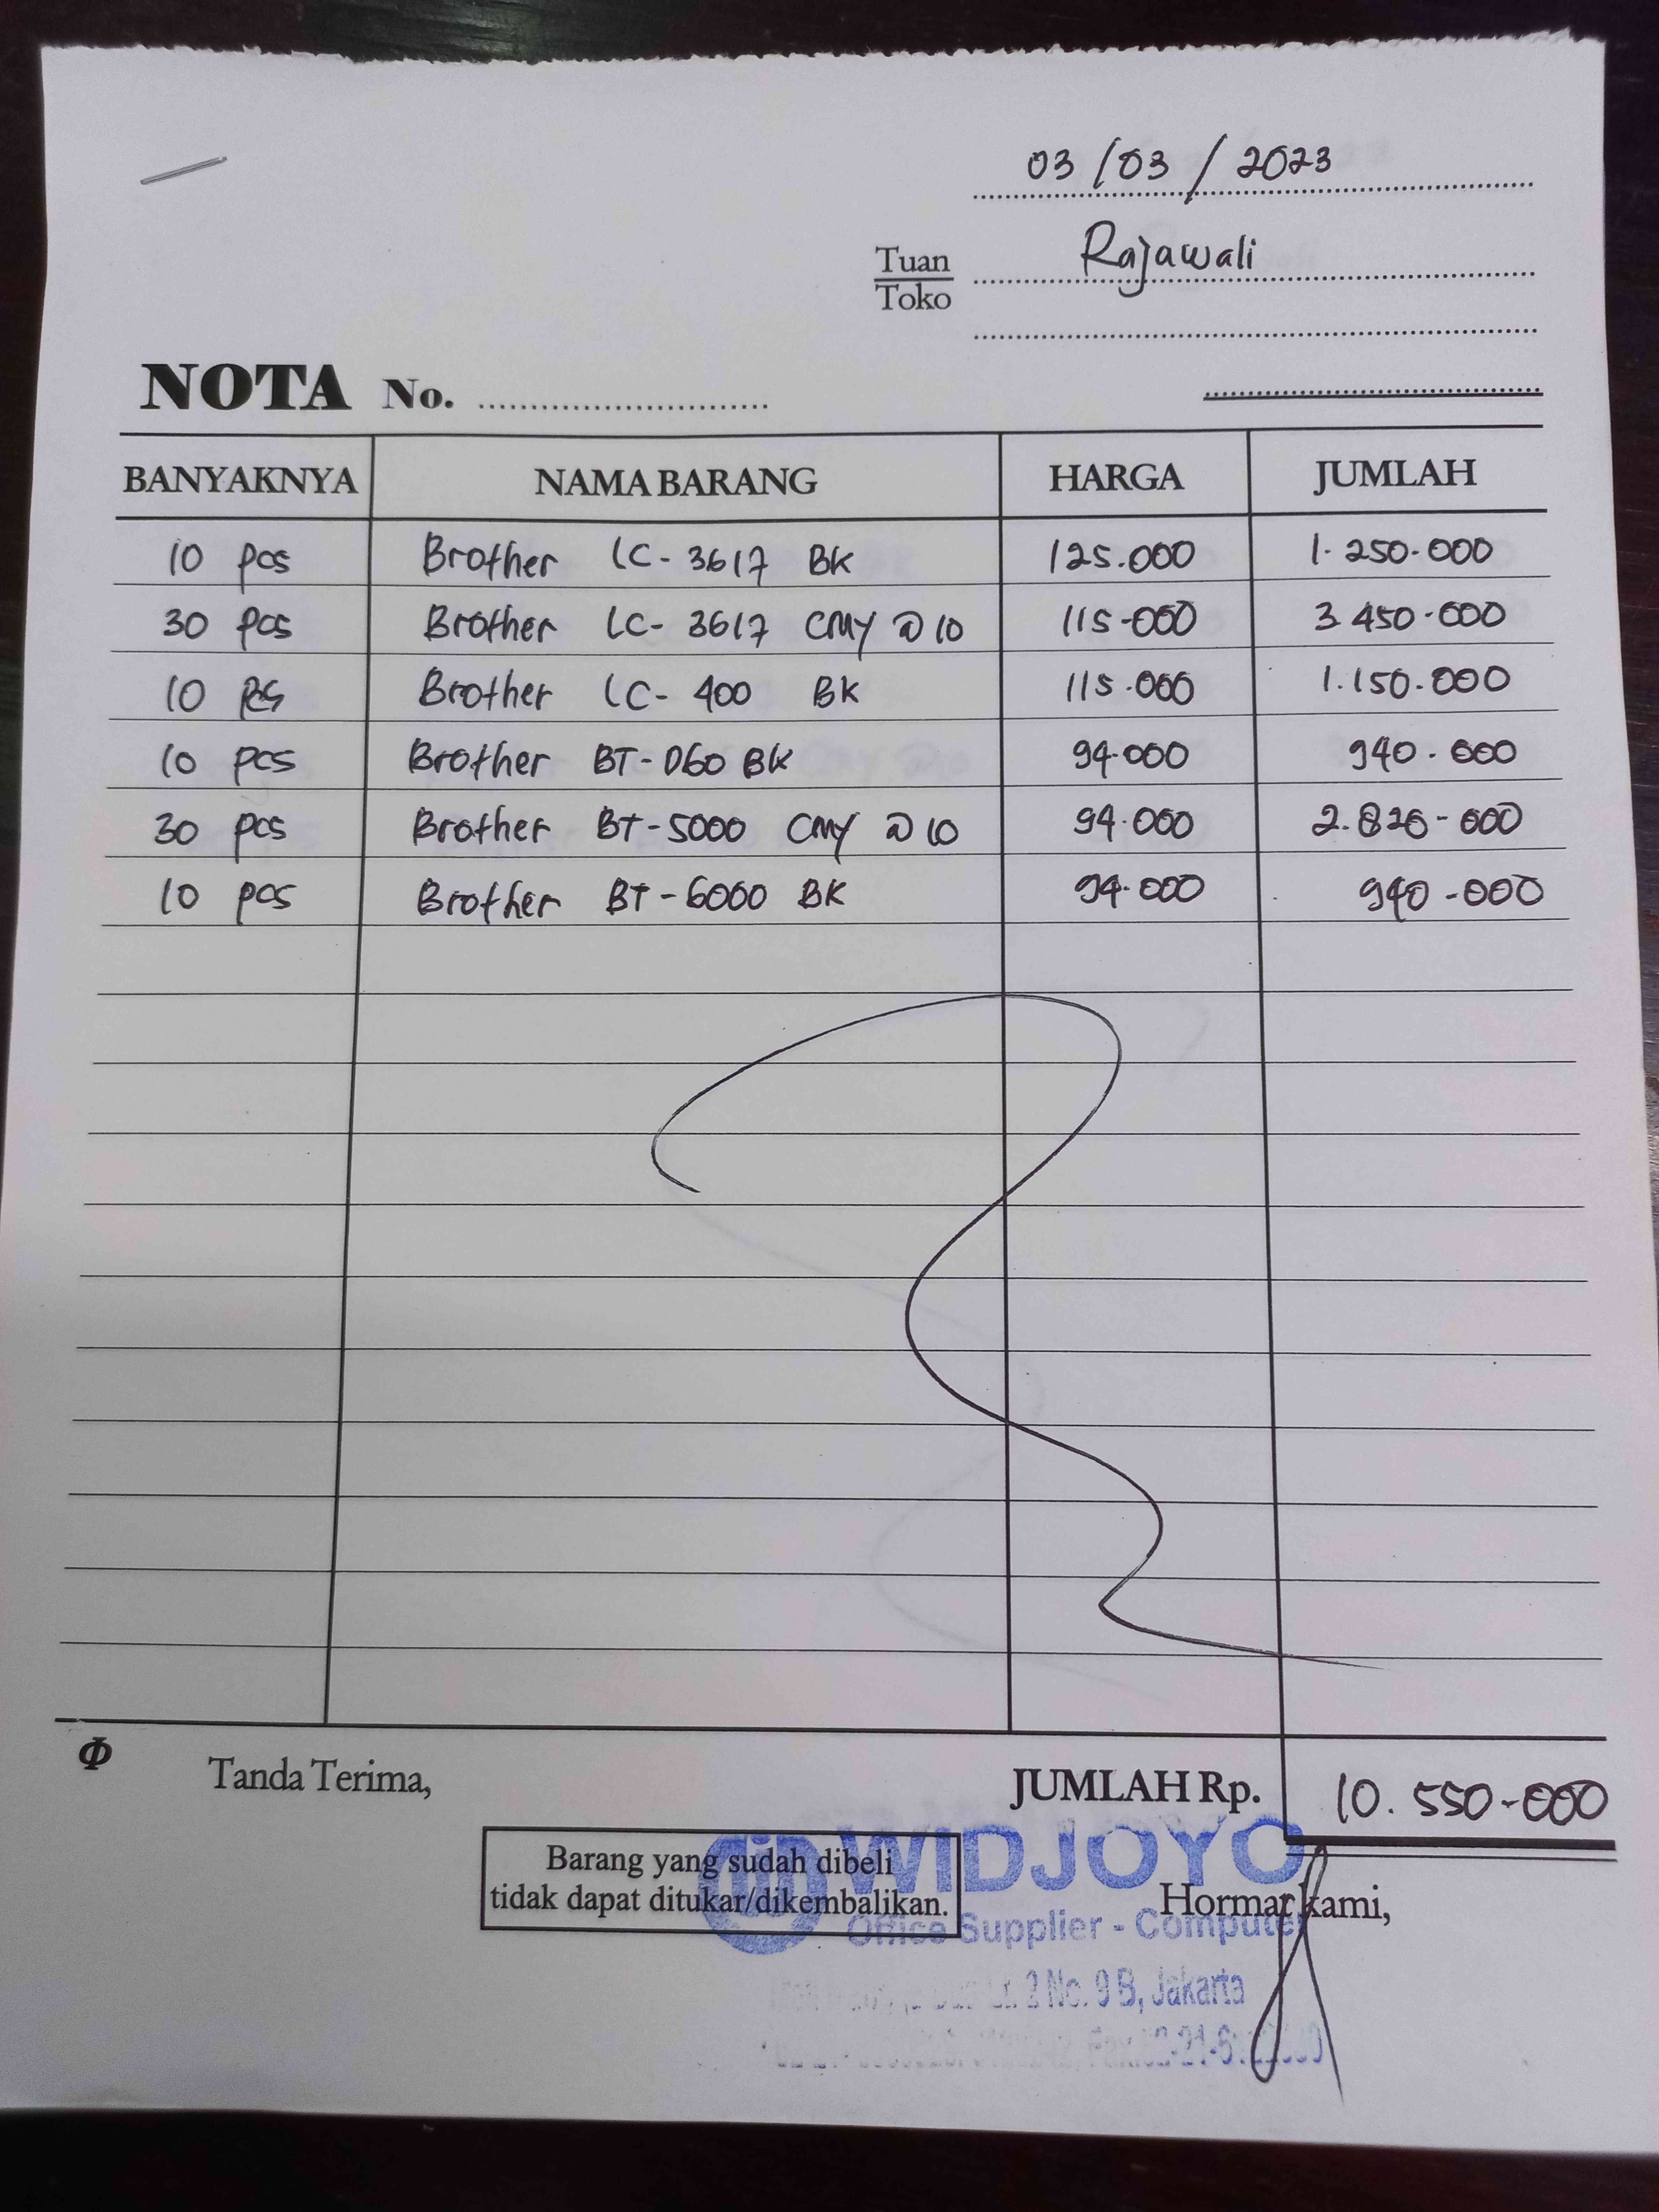 03/03/2023
Tuan
Toko
Rajawali
NOTA No.
BANYAKNYA NAMA BARANG HARGA JUMLAH
10 pcs Brother LC-3617 BK 125.000 1.250.000
30 pcs Brother LC-3617 CMY @10 115-000 3.450.000
10 pcs Brother LC-400 BK 115.000 1.150.000
10 pcs Brother BT-D60 BK 94.000 940.000
30 pcs Brother BT-5000 CMY @10 94.000 2.820-000
10 pcs Brother BT-6000 BK 94.000 940-000
Φ Tanda Terima, JUMLAH Rp. 10.550-000
Barang yang sudah dibeli
tidak dapat ditukar/dikembalikan.
WIDJOYO
Hormat kami,
Office Supplier - Computer
No. 9 B, Jakarta